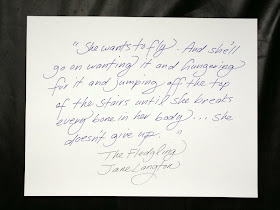 "She wants to fly. And she'll
go on wanting it and hungering
for it and jumping off the top
of the stairs until she breaks
every bone in her body... she
doesn't give up."
The Fledgling
Jane Langton